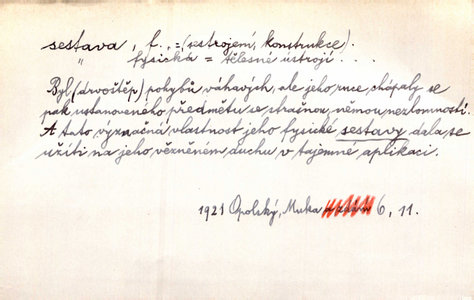 sestava, f., = (sestrojení, konstrukce).
" fysická = tělesné ústrojí . . .
Byl (drvoštěp) pohybů váhavých, ale jeho ruce chápaly se
pak ustanoveného předmětu se strašnou, němou nezlomností.
A tato význačná vlastnost jeho fysické sestavy dala se
užíti na jeho vězněném duchu v tajemné aplikaci.
1921 Opolský, Muka 6, 11.